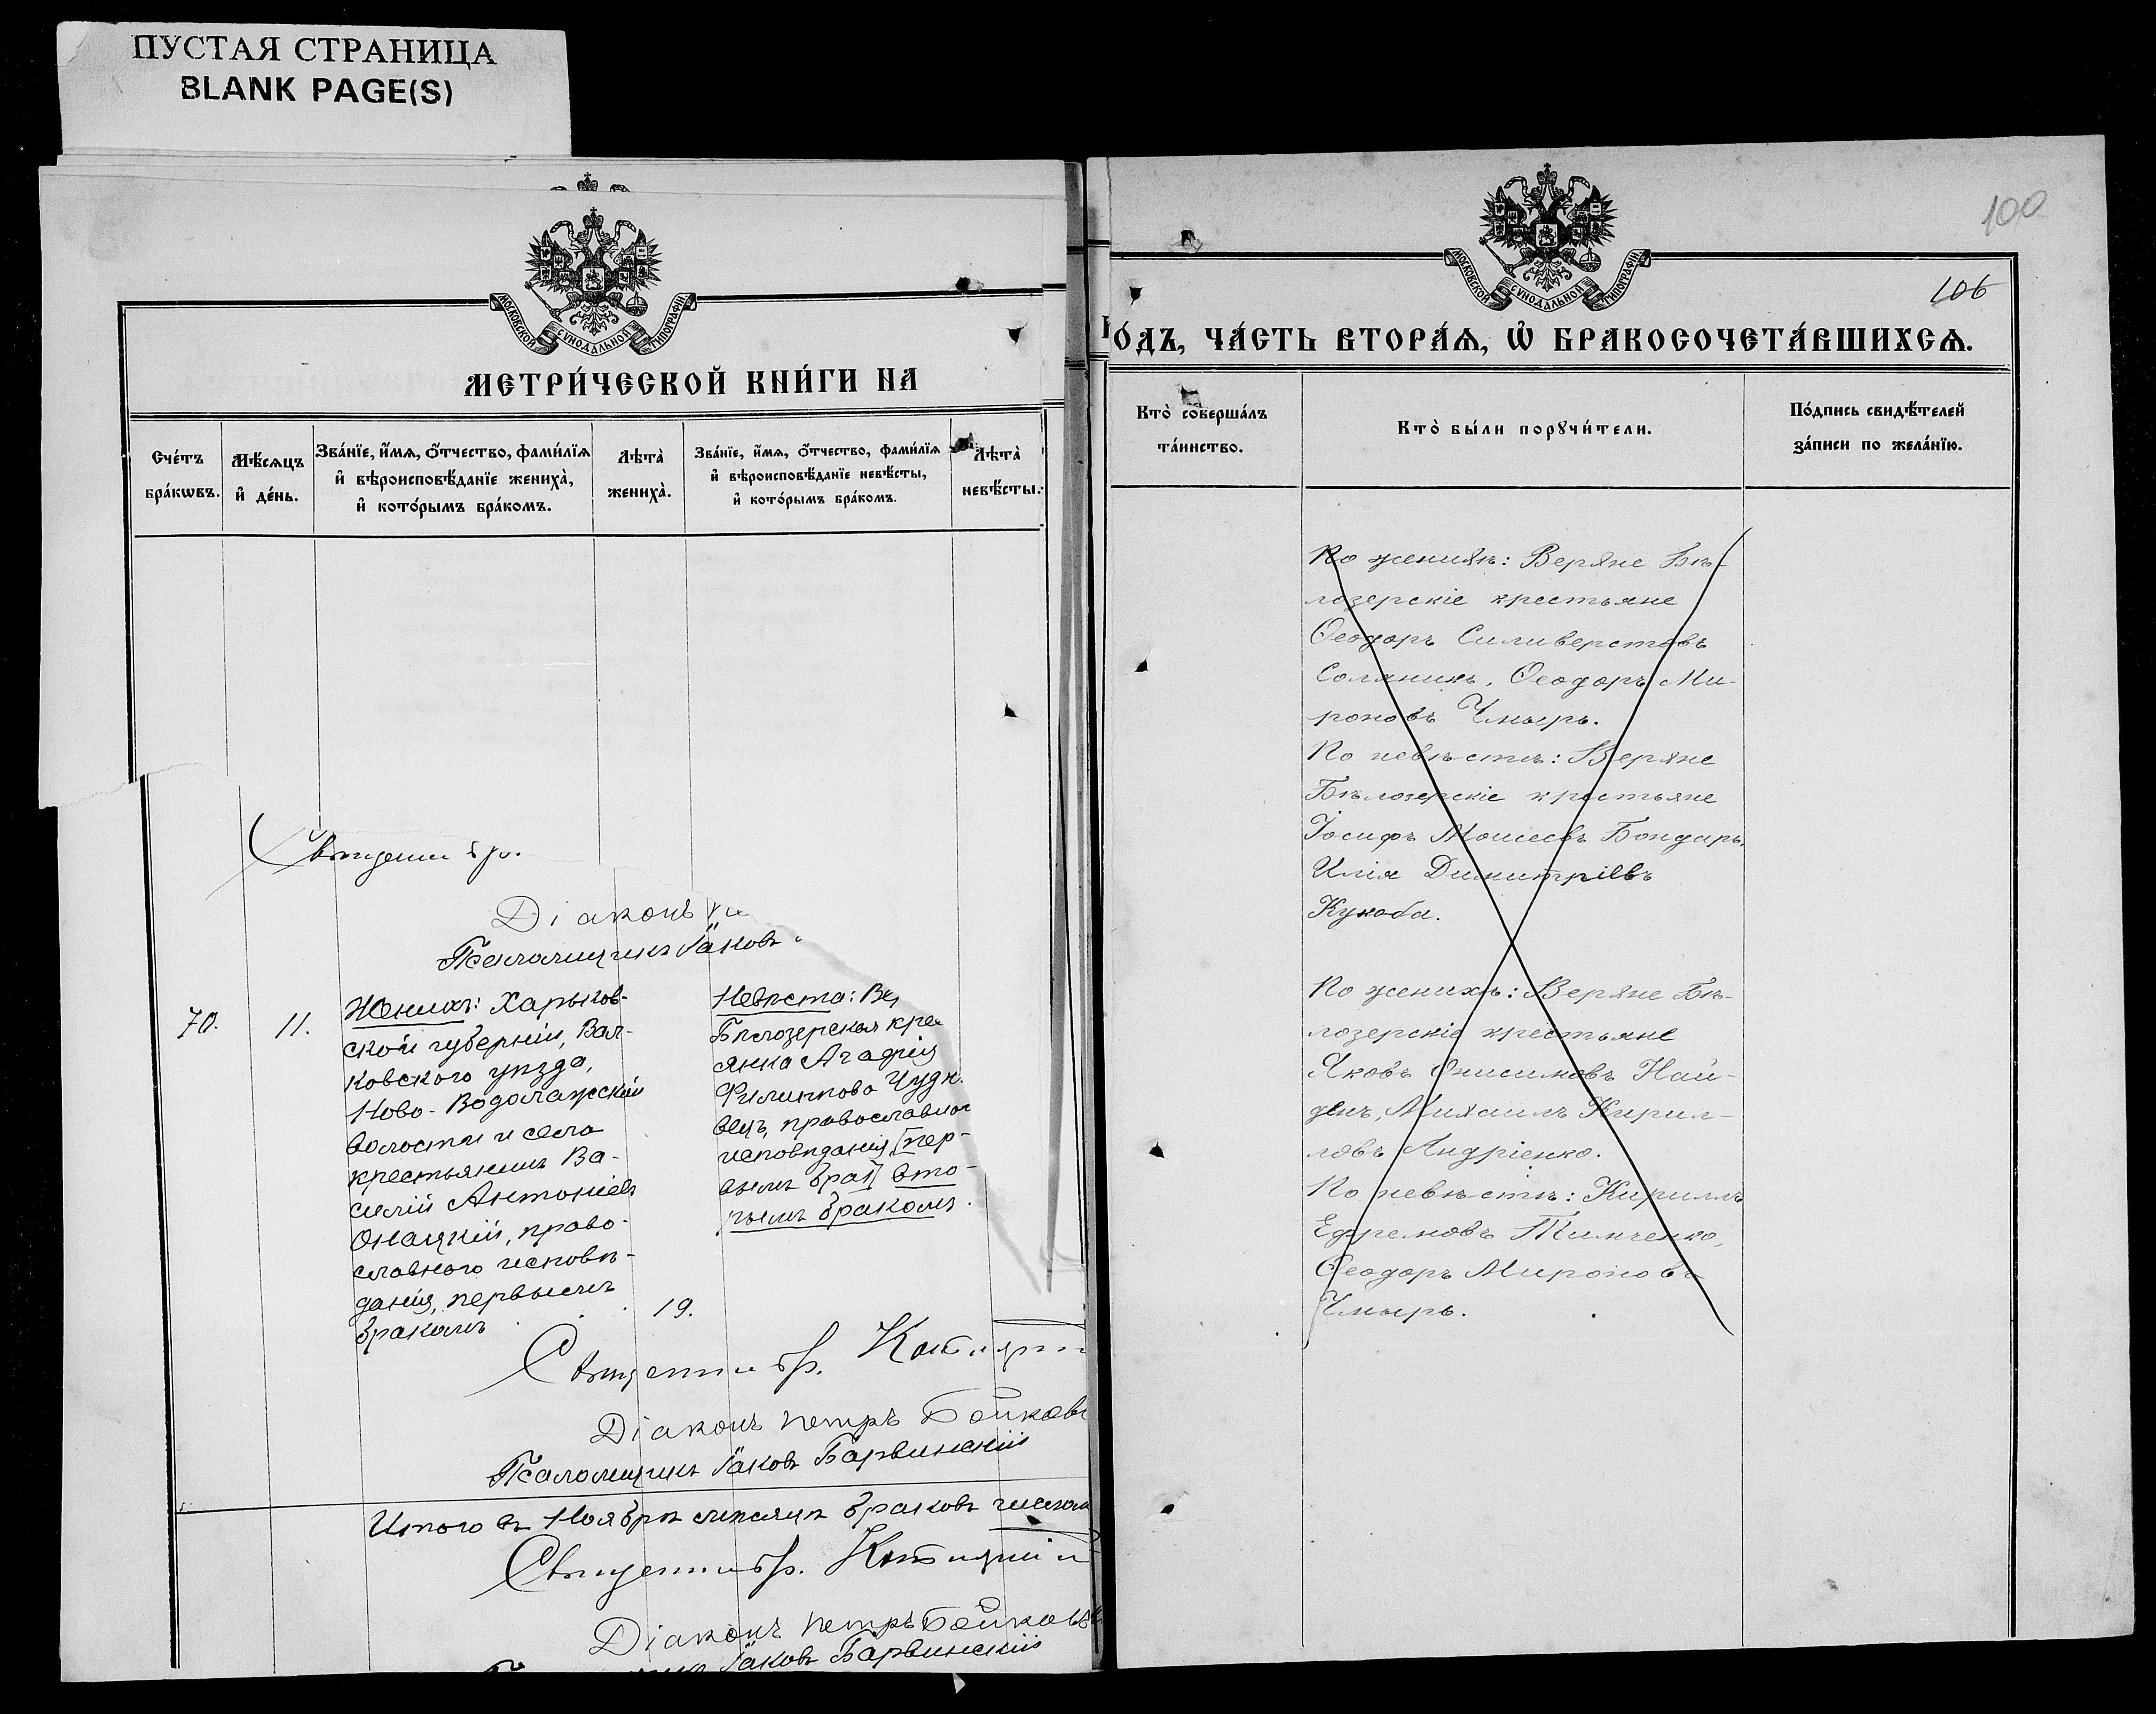 ПУСТАЯ СТРАНИЦА
BLANK PAGE(S)
МОСКОВСКОЙ СѴНОДАЛЬНОЙ ТИПОГРАФІИ
МЕТРИ́ЧЕСКОЙ КНИ́ГИ НА
Сче́тъ
бра́кѡвъ.
Мѣ́сѧцъ
и҆ де́нь.
Зва́нїе, и҆́мѧ, ѻ҆́тчество, фами́лїѧ
и҆ вѣроисповѣ́данїе жениха̀,
и҆ кото́рымъ бра́комъ.
Лѣта̀
жениха̀.
Зва́нїе, и҆́мѧ, ѻ҆́тчество, фами́лїѧ
и҆ вѣроисповѣ́данїе невѣ́сты,
и҆ кото́рымъ бра́комъ.
Лѣта̀
невѣ́сты.
Діаконъ
Псаломщикъ Іаковъ
70.
11.
Женихъ: Харьков-
ской губерніи, Вал-
ковского уѣзда,
Ново-Водолажской
волости и села
крестьянинъ Ва-
силій Антоніевъ
Онацкій, право-
славного исповѣ-
данія, первымъ
бракомъ
19.
Невѣста: Ве
Бѣлозерская кре
янка Агафія
Филиппова Чудн
вецъ, православног
исповѣданія, [пер-
вымъ бра] вто-
рымъ бракомъ.
Діаконъ Петръ Бойковъ
Псаломщикъ Іаковъ Барвинскій
Итого въ Ноябрѣ мѣсяцѣ браковъ числом
Діаконъ Петръ Бойковъ
Іаковъ Барвинскій
100
106
МОСКОВСКОЙ СѴНОДАЛЬНОЙ ТИПОГРАФІИ
О́ДЪ, ЧА́СТЬ ВТОРА́Ѧ, Ѽ БРАКОСОЧЕТА́ВШИХСѦ.
Кто̀ соверша́лъ
та́инство.
Кто̀ бы́ли порꙋчи́тели.
По́дпись свидѣ́телей
за́писи по жела́нїю.
По женихѣ: Веряне Бѣ-
лозерскіе крестьяне
Ѳеодоръ Силиверстовъ
Соляникъ, Ѳеодоръ Ми-
роновъ Чмырь.
По невѣстѣ: Веряне
Бѣлозерскіе крестьяне
Іосифъ Моисеевъ Бондарь,
Илія Димитріевъ
Кукоба.
По женихѣ: Веряне Бѣ-
лозерскіе крестьяне
Яковъ Онисимовъ Най-
денъ, Михаилъ Кирил-
ловъ Андріенко.
По невѣстѣ: Кириллъ
Ефремовъ Тимченко,
Ѳеодоръ Мироновъ
Чмырь.